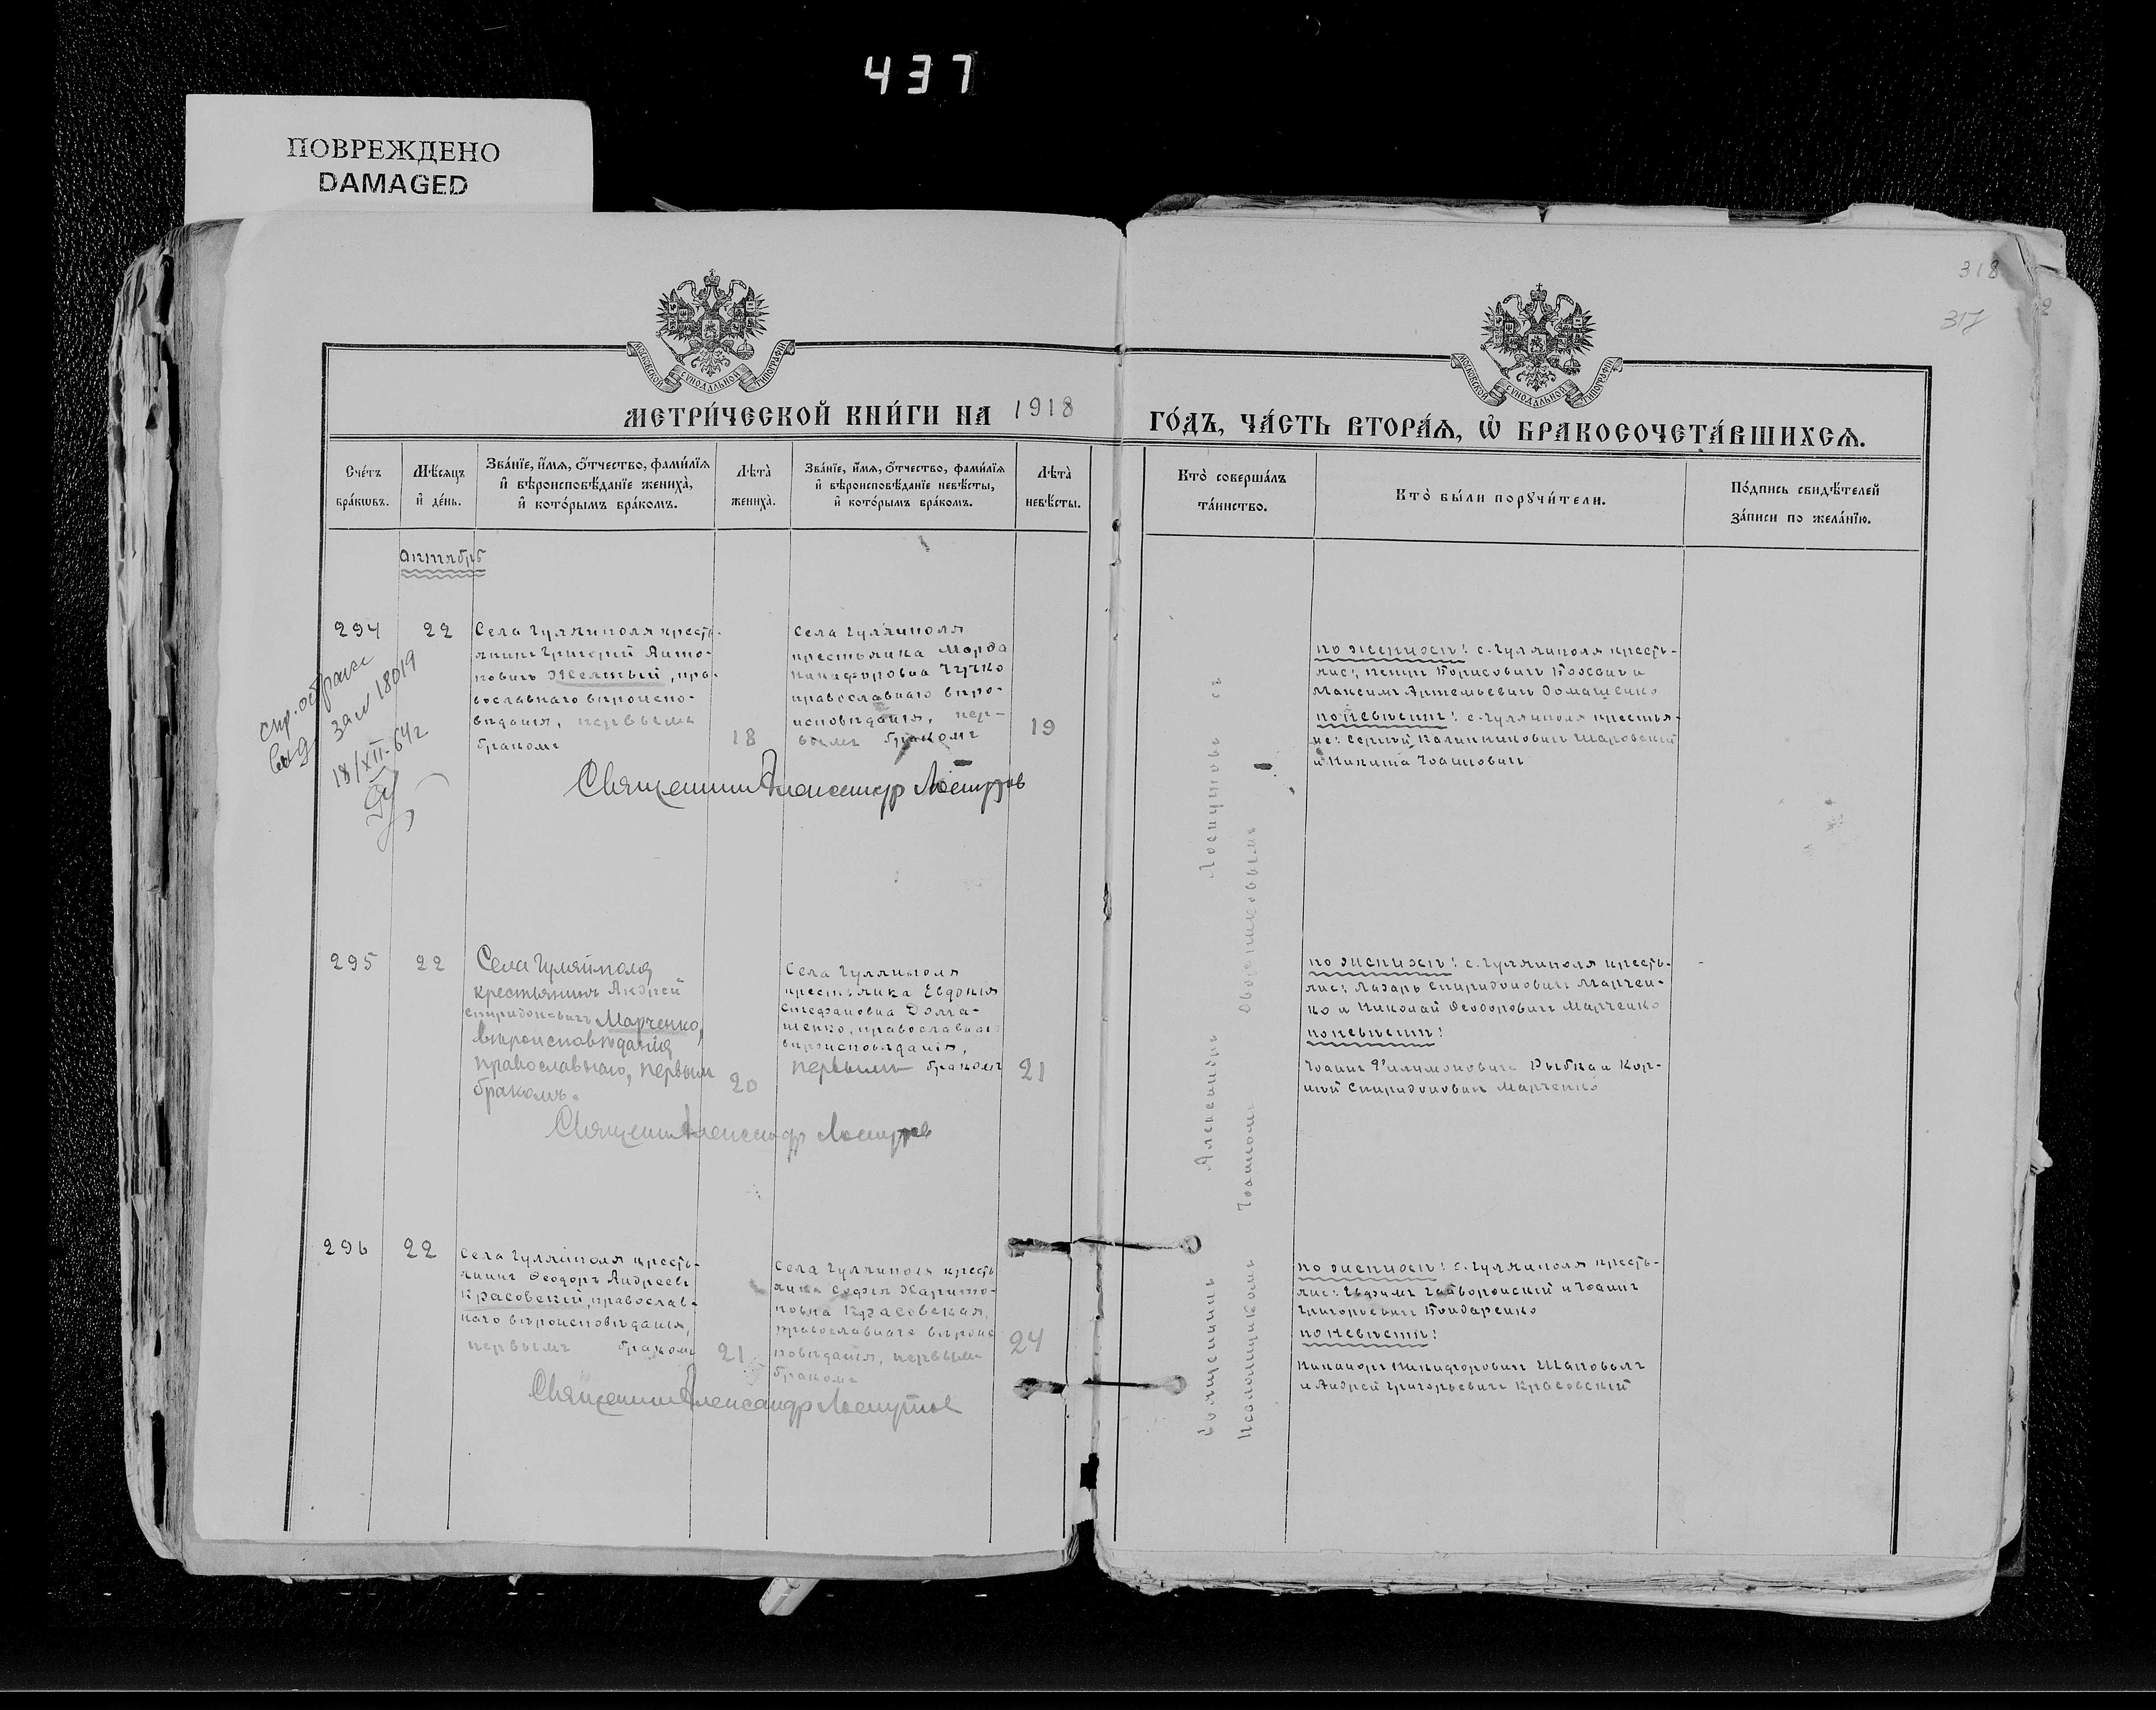 437
ПОВРЕЖДЕНО
DAMAGED
318
317
МОСКОВСКОЙ СѴНОДАЛЬНОЙ ТИПОГРАФІИ
МОСКОВСКОЙ СѴНОДАЛЬНОЙ ТИПОГРАФІИ
МЕТРИ́ЧЕСКОЙ КНИ́ГИ НА 1918
ГО́ДЪ, ЧА́СТЬ ВТОРА́Я, Ѡ БРАКОСОЧЕТА́ВШИХСЯ.
Сче́тъ
бра́ковъ.
Мѣ́сяцъ
и де́нь.
Зва́нїе, и́мя, о́тчество, фами́лїя
и вѣроисповѣ́данїе жениха̀,
и кото́рымъ бра́комъ.
Лѣта̀
жениха̀.
Зва́нїе, и́мя, о́тчество, фами́лїя
и вѣроисповѣ́данїе невѣ́сты,
и кото́рымъ бра́комъ.
Лѣта̀
невѣ́сты.
Кто̀ соверша́лъ
та́инство.
Кто̀ бы́ли порꙋчи́тели.
По́дпись свидѣ́телей
за́писи по жела́нїю.
Октябрь
294
22
Села Гуляйполя кресть-
янинъ Григорій Анто-
новичъ Желтый, пра-
вославнаго вѣроиспо-
вѣданія, первымъ
бракомъ
18
Села Гуляйполя
крестьянка Марфа
Никифоровна Чучко
православнаго вѣро-
исповѣданія, пер-
вымъ бракомъ
19
Священникъ Александръ Лоскутовъ
за № 18019
18/XII-64г
по женихѣ: с. Гуляйполя кресть-
яне:
Максимъ Артемьевичъ Домашенко
по невѣстѣ: с. Гуляйполя крестья-
не: Сергѣй Калинниковичъ Шаровскій
и Никита Іоанновичъ
295
22
Села Гуляйполя
крестьянинъ Андрей
Спиридоновичъ Марченко,
вѣроисповѣданія
православнаго, первымъ
бракомъ.
20
Села Гуляйполя
крестьянка Евдокія
Стефановна Домa-
шенко, православнаго
вѣроисповѣданія,
первымъ бракомъ
21
Священникъ Александръ Лоскутовъ
по женихѣ: с. Гуляйполя кресть-
яне: Лазарь Спиридоновичъ Марчен-
ко и Николай Ѳеодоровичъ Марченко
по невѣстѣ:
Іоаннъ Филимоновичъ Рыбка и Кор-
нѣй Спиридоновичъ Марченко
296
22
Села Гуляйполя кресть-
янинъ Ѳеодоръ Андреевъ
Красовскій, православ-
наго вѣроисповѣданія,
первымъ бракомъ
21
Села Гуляйполя кресть
янка Софія Харито-
новна Красовская,
православнаго вѣроис
повѣданія, первымъ
бракомъ
24
Священникъ Александръ Лоскутовъ
по женихѣ: с. Гуляйполя кресть-
яне: Ефимъ Гайворонскій и Іоаннъ
Григорьевичъ Бондаренко
по невѣстѣ:
Никаноръ Никифоровичъ Шаповалъ
и Андрей Григорьевичъ Красовскій
Священникъ Александръ Лоскутовъ съ
Псаломщикомъ Іоанномъ Овчинниковымъ